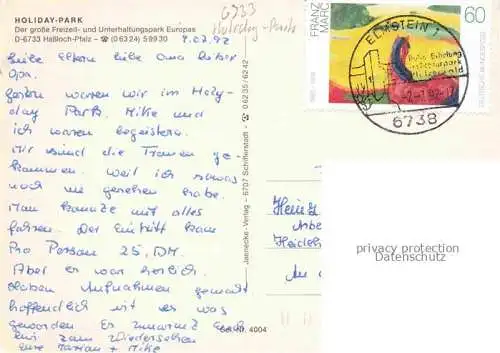 HOLIDAY-PARK
Der große Freizeit- und Unterhaltungspark Europas
D-6733 Haßloch-Pfalz - ☎ (0 63 24) 5 99 30
6733
Holiday-Park
7.92
Liebe Eltern liebe Oma lieber
Opa.
gestern waren wir im Holy-
day Park. Mike und
ich waren begeistert.
Mir sind die Tränen ge-
kommen. Weil ich sowas
noch nie gesehen habe.
Man konnte mit alles
fahren. Der Eintritt kam
Pro Person 25,DM.
Aber er war herlich.
Haben Aufnahmen gemacht
hoffentlich ist es was
geworden Es
zum Wiedersehen
eure + Mike
Jaenecke-Verlag - 6707 Schifferstadt - ☎ 0 62 35/62 42
Best.-Nr. 4004
FRANZ
MARC
60
DEUTSCHE BUNDESPOST
ELMSTEIN 1
6738
Heinz
Heidel
An
privacy protection
Datenschutz